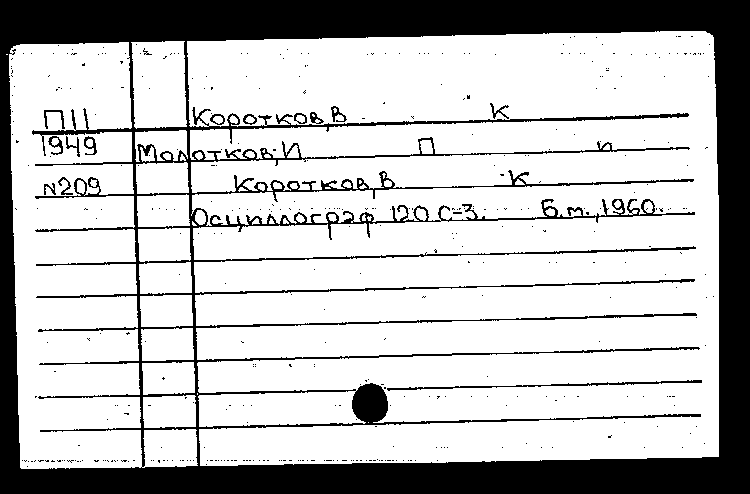 П11 Коротков,В К
1949 Молотков,И П и
N209 Коротков,В К
Осциллограф 120 С-3. Б.м.,1960.